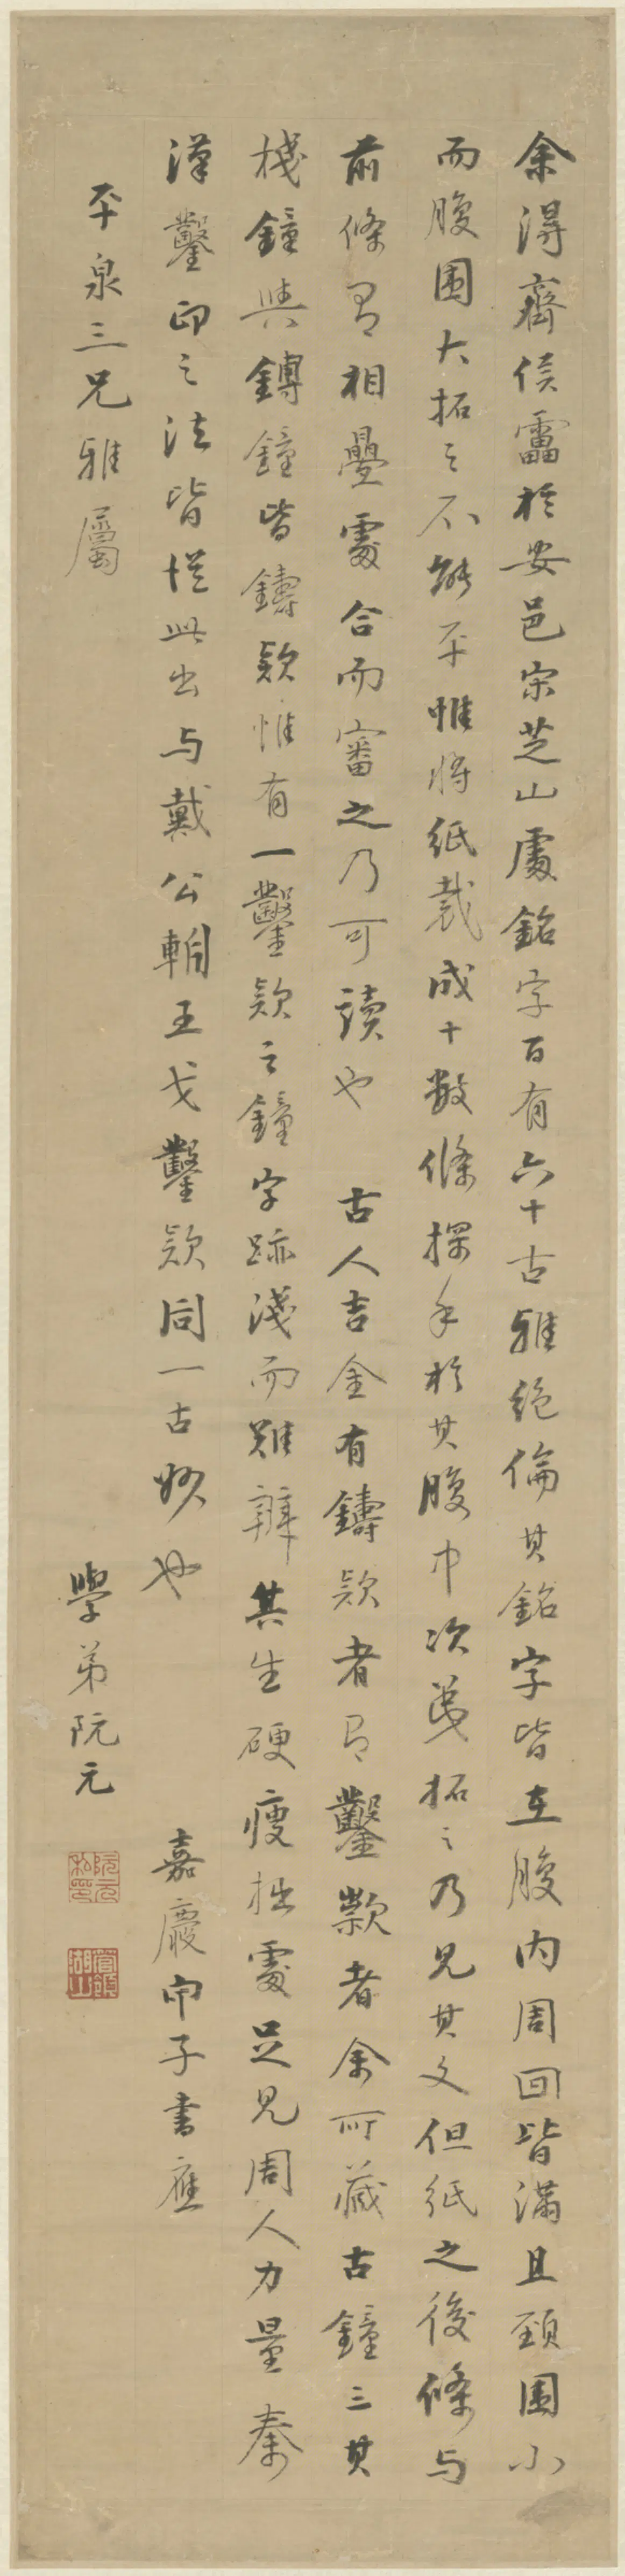 余得齊侯罍於安邑宋芝山處銘字百有六十古雅絕倫其銘字皆在腹內周回皆滿且頸圍小
而腹圍大拓之不能平惟將紙裁成十數條探手於其腹中次第拓之乃見其文但紙之後條与
前條有相疊處合而審之乃可讀也 古人吉金有鑄款者有鑿款者余所藏古鐘三其
棧鐘與鎛鐘皆鑄款惟有一鑿款之鐘字跡淺而難辨其生硬瘦拙處足見周人力量秦
漢鑿印之法皆從此出与戴公朝王戈鑿款同一古妙也 嘉慶甲子書應
平泉三兄雅屬 學弟阮元
阮元私印